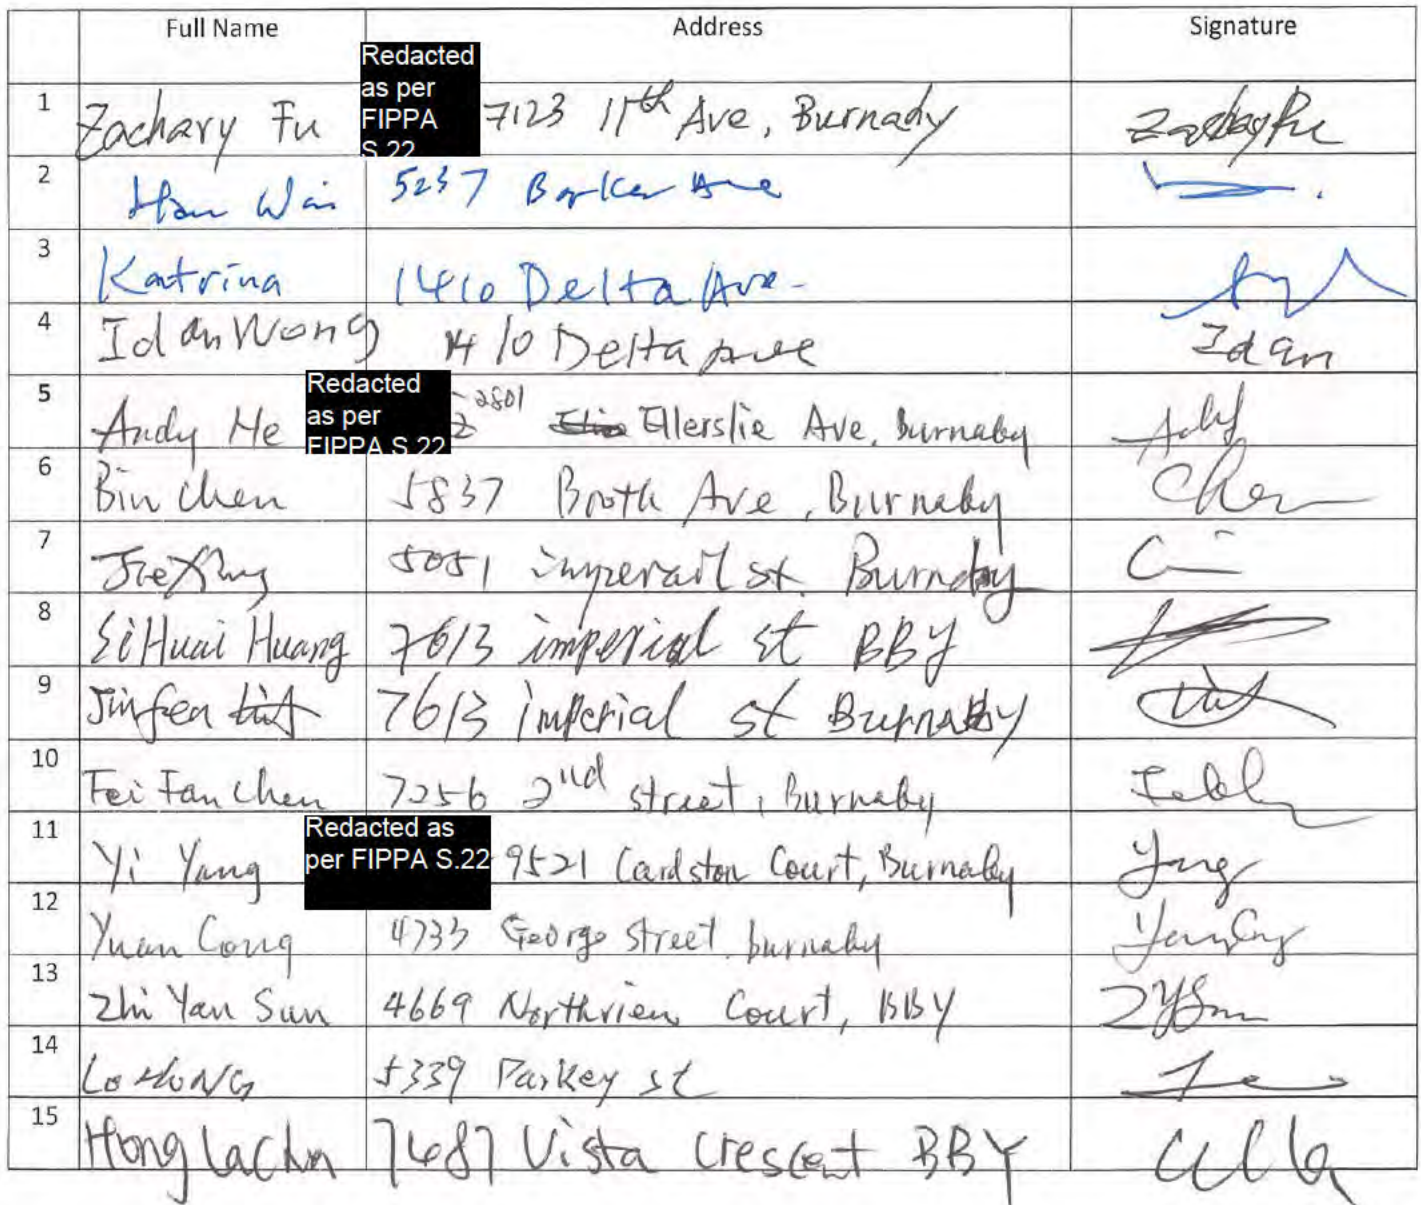 Full Name Address Signature
Redacted
as per
FIPPA
S.22
1 Zachary Fu 7123 11th Ave, Burnaby
2 5237 Barker Ave
3 Katrina 1410 Delta Ave-
4 Idan Wong 1410 Delta Ave Idan
Redacted
as per
FIPPA S.22
5 Andy He 2801 Ellerslie Ave, Burnaby
6 Bin Chen 5837 Ave, Burnaby Chen
7 5051 imperail st. Burnaby
8 SiHuai Huang 7613 imperial st BBY
9 Jinfen 7613 imperial st Burnaby
10 Fei Fan Chen 7256 2nd street, Burnaby
Redacted as
per FIPPA S.22
11 Yi Yang 9521 Cardston Court, Burnaby Yang
12 Yuan Cong 4733 George street burnaby
13 Zhi Yan Sun 4669 Northview Court, BBY ZYSun
14 5339 st
15 Hong 7487 Vista Crescent BBY